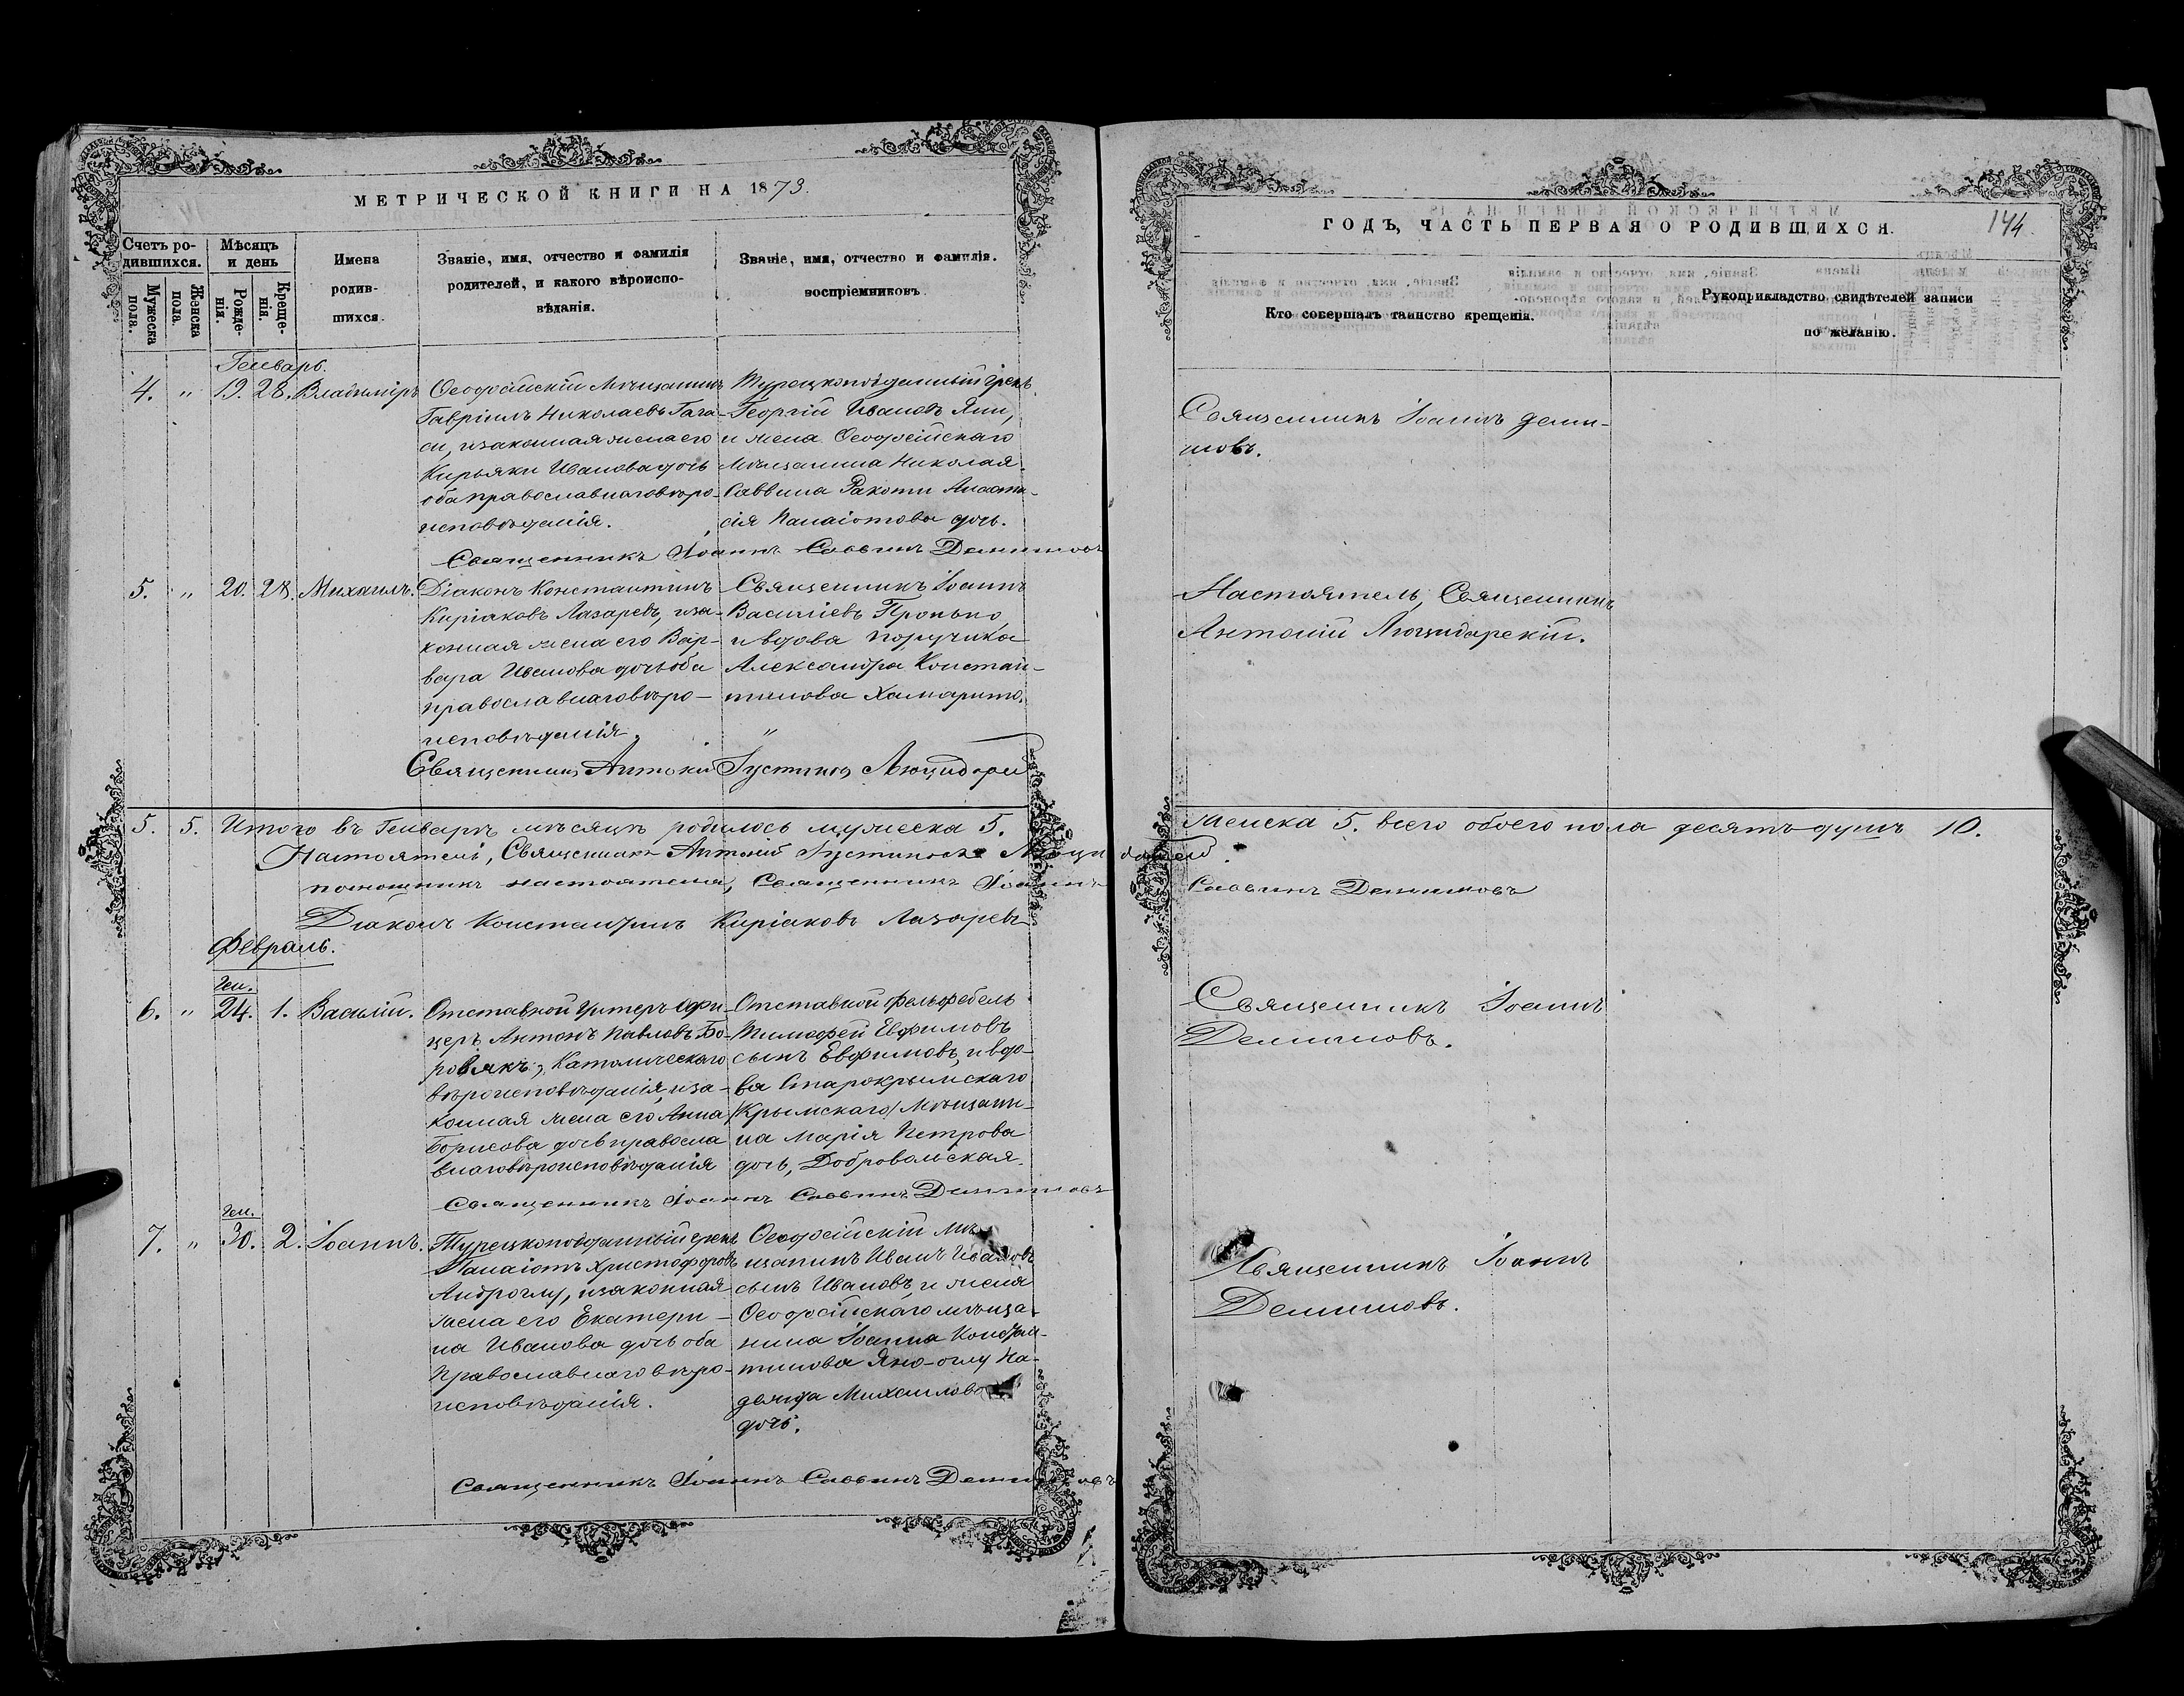 МЕТРИЧЕСКОЙ КНИГИ НА 1873.
Счетъ ро-
дившихся.
Мужеска пола.
Женска пола.
Мѣсяцъ
и день
Рожде-
нія.
Креще-
нія.
Имена
родив-
шихся.
Званіе, имя, отчество и фамилія
родителей, и какого вѣроиспо-
вѣданія.
Званіе, имя, отчество и фамилія.
воспріемниковъ
Генварь.
4. " 19. 28. Владиміръ
Ѳеодосійскій Мѣщанинъ
Гавріилъ Николаевъ Гага-
си, изаконная жена его
Кирьяки Иванова дочь
оба православнаго вѣро-
исповѣданія.
Турецкоподданный Грекъ
Георгій Ивановъ Яни,
и жена Ѳеодосійскаго
Мѣщанина Николая
Саввина Ракоти Анаста-
сія Панаіотова дочь.
Священникъ Іоаннъ Саввинъ Демишовъ
5. " 20. 28. Михаилъ.
Діаконъ Константинъ
Киріаковъ Лазаревъ, иза-
конная жена его Вар-
вара Иванова дочь оба
православнаго вѣро-
исповѣданія.
Священникъ Іоаннъ
Василіевъ Пропько
и вдова поручика
Александра Констан-
тинова Хамарито.
"
Священникъ Антоній Іустиновъ
5. 5. Итого въ Генварѣ мѣсяцѣ родилось мужеска 5.
Настоятель, Священникъ Антоній Іустиновъ
помощникъ настоятеля, Священникъ Іоаннъ
Діаконъ Константинъ Киріаковъ Лазаревъ
Февраль.
Ген.
6. " 24. 1. Василій.
Отставной Унтеръ Офи-
церъ Антонъ Павловъ Бо-
ровякъ, Католическаго
вѣроисповѣданія, иза-
конная жена его Анна
Борисова дочь правосла
внаго вѣроисповѣданія
Отставной Фельфебель
Тимофей Евфимовъ
сынъ Евфимовъ, и вдо-
ва Старокрымскаго
/Крымскаго/ Мѣщани-
на Марія Петрова
дочь, Добровольская.
Священникъ Іоаннъ Саввинъ Демишовъ
Ген.
7. " 30. 2. Іоаннъ.
Турецкоподданный грекъ
Панаіотъ Христофоровъ
изаконная
жена его Екатери-
на Иванова дочь оба
Православнаго вѣро-
исповѣданія.
Ѳеодосійскій Мѣ-
щанинъ Иванъ Ивановъ
сынъ Ивановъ, и жена
Ѳеодосійскаго мѣща-
нина Іоанна Констан-
тинова Яно-оглу На-
дежда Михаилова
дочь.
Священникъ Іоаннъ Саввинъ Демишовъ
ГОДЪ, ЧАСТЬ ПЕРВАЯ О РОДИВШИХСЯ.
144.
Кто совершалъ таинство крещенія.
Рукоприкладство свидѣтелей записи
по желанію.
Священникъ Іоаннъ Деми-
шовъ.
Настоятель, Священникъ
Антоній
женска 5. всего обоего пола десять душъ 10.
Саввинъ Демишовъ
Священникъ Іоаннъ
Демишовъ.
Священникъ Іоаннъ
Демишовъ.